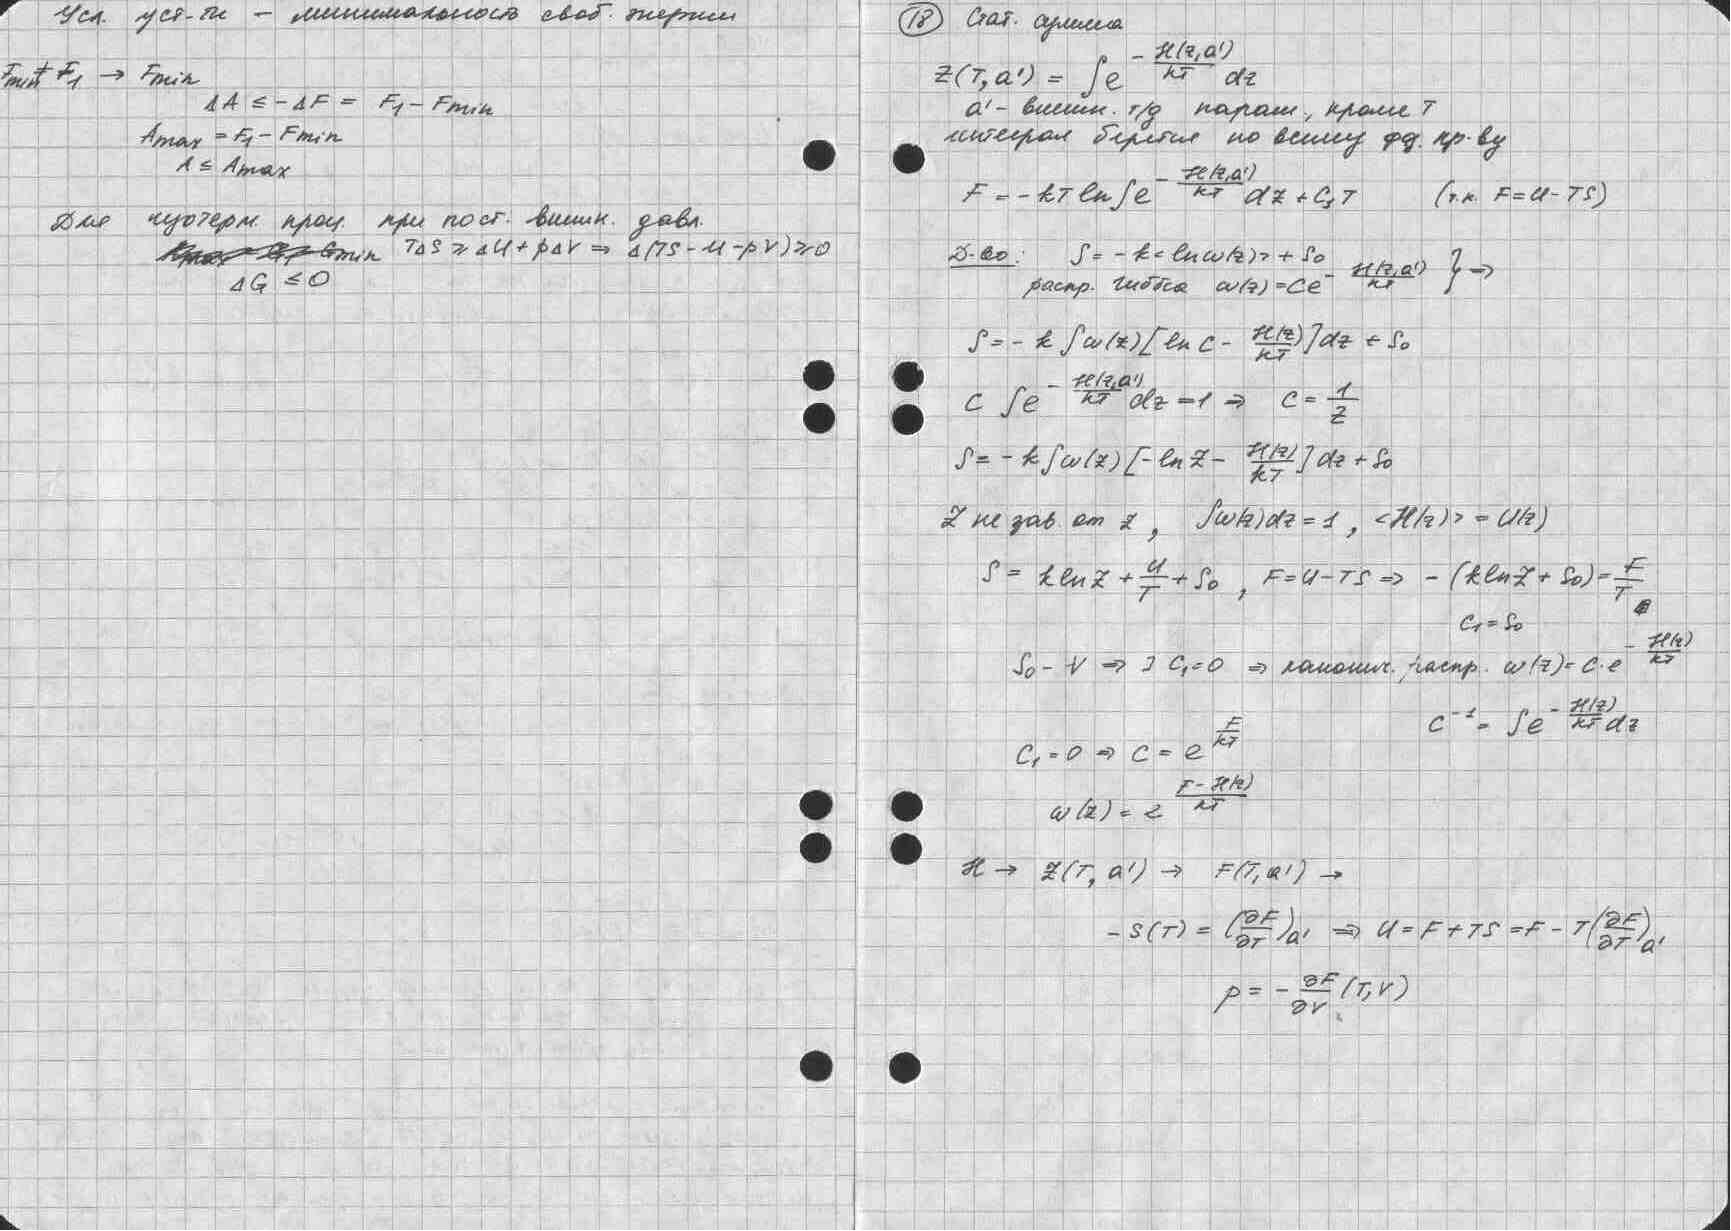 Усл. уст-ти – минимальность своб. энергии
F_min ≠ F_1 → F_min
ΔA ≤ -ΔF = F_1 - F_min
A_max = F_1 - F_min
A ≤ A_max
Для изотерм. проц. при пост. внешн. давл.
TΔS ≥ ΔU + pΔV ⇒ Δ(TS - U - pV) ≥ 0
ΔG ≤ 0
(18) Стат. сумма
Z(T, a') = ∫e^{-H(z,a')/kT} dz
a' - внешн. т/д парам., кроме T
интеграл берется по всему фз. пр-ву
F = -kT ln∫e^{-H(z,a')/kT} dz + C_1T (т.к. F = U - TS)
Д-во: S = -k<lnω(z)> + S_0
распр. Гиббса ω(z) = Ce^{-H(z,a')/kT} } ⇒
S = -k∫ω(z)[ln C - H(z)/kT]dz + S_0
C ∫e^{-H(z,a')/kT} dz = 1 ⇒ C = 1/Z
S = -k∫ω(z)[-ln Z - H(z)/kT]dz + S_0
Z не зав. от z, ∫ω(z)dz = 1, <H(z)> = U(z)
S = k ln Z + U/T + S_0, F = U - TS ⇒ -(k ln Z + S_0) = F/T
C_1 = S_0
S_0 - ∀ ⇒ ∃ C_1 = 0 ⇒ канонич. распр. ω(z) = C·e^{-H(z)/kT}
C^{-1} = ∫e^{-H(z)/kT} dz
C_1 = 0 ⇒ C = e^{F/kT}
ω(z) = e^{F-H(z)/kT}
H → Z(T, a') → F(T, a') →
-S(T) = (∂F/∂T)_{a'} ⇒ U = F + TS = F - T(∂F/∂T)_{a'}
p = -∂F/∂V (T, V)